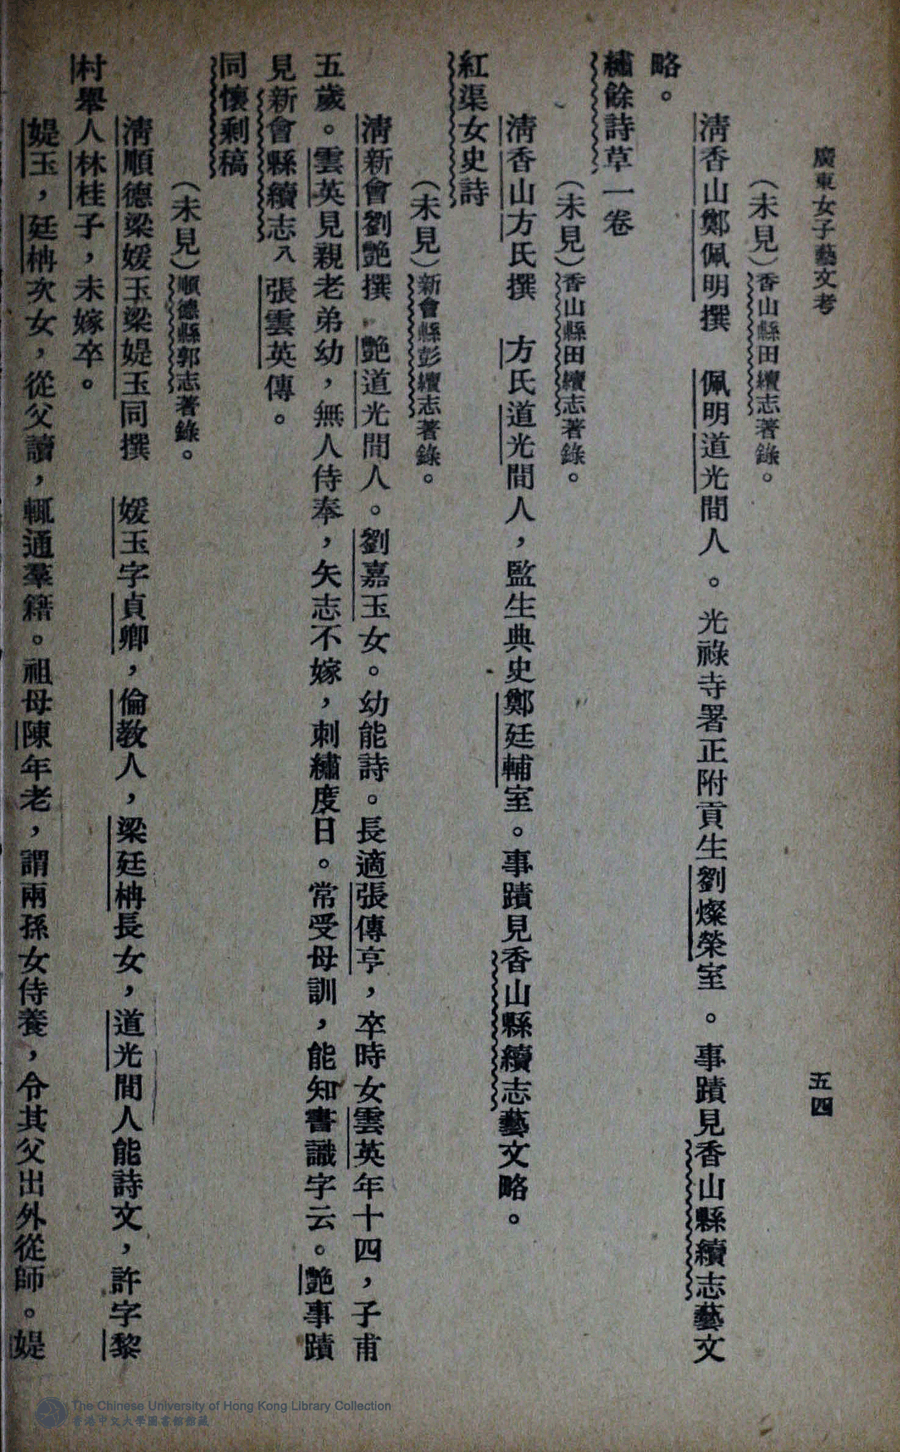 廣東女子藝文考
五四
(未見)香山縣田續志著錄。
清香山鄭佩明撰 佩明道光間人。光祿寺署正附貢生劉燦榮室。事蹟見香山縣續志藝文
略。
繡餘詩草一卷
(未見)香山縣田續志著錄。
清香山方氏撰 方氏道光間人，監生典史鄭廷輔室。事蹟見香山縣續志藝文略。
紅渠女史詩
(未見)新會縣彭續志著錄。
清新會劉艷撰 艷道光間人。劉嘉玉女。幼能詩。長適張傳亨，卒時女雲英年十四，子甫
五歲。雲英見親老弟幼，無人侍奉，矢志不嫁，刺繡度日。常受母訓，能知書識字云。艷事蹟
見新會縣續志八張雲英傳。
同懷剩稿
(未見)順德縣郭志著錄。
清順德梁媛玉梁媞玉同撰 媛玉字貞卿，倫教人，梁廷枏長女，道光間人能詩文，許字黎
村舉人林桂子，未嫁卒。
媞玉，廷枏次女，從父讀，輒通羣籍。祖母陳年老，謂兩孫女侍養，令其父出外從師。媞
The Chinese University of Hong Kong Library Collection
香港中文大學圖書館館藏